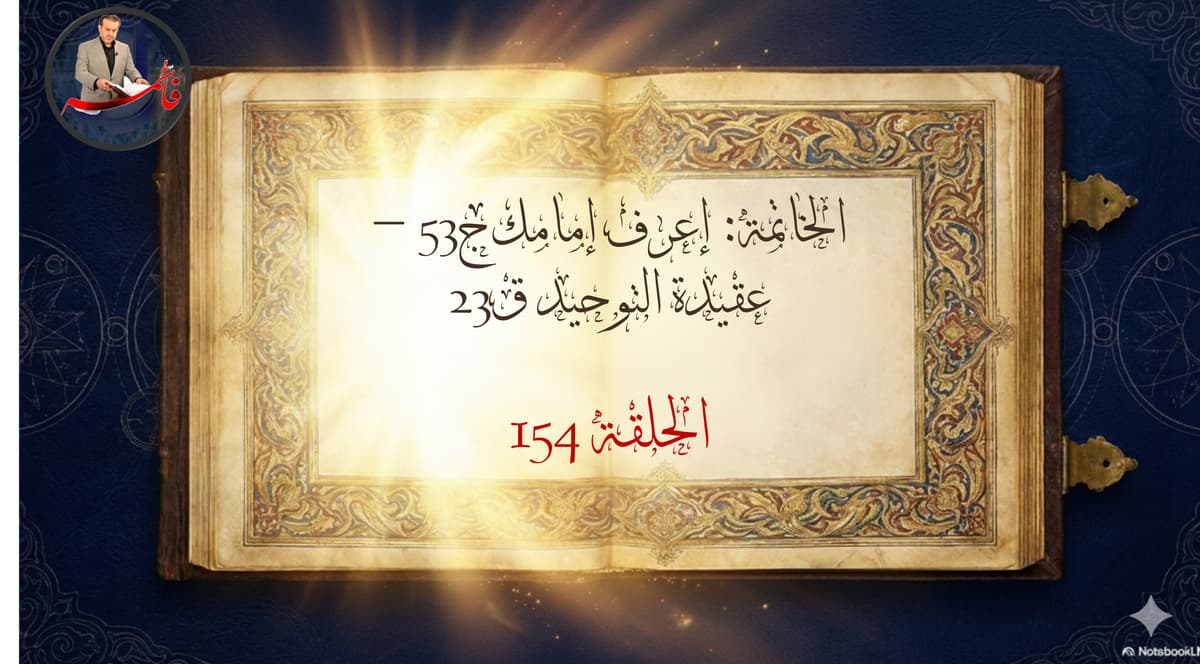 فاطمة
الخاتمة: إعرف إمامك ج53 –
عقيدة التوحيد ق23
الحلقة 154
NotebookLM